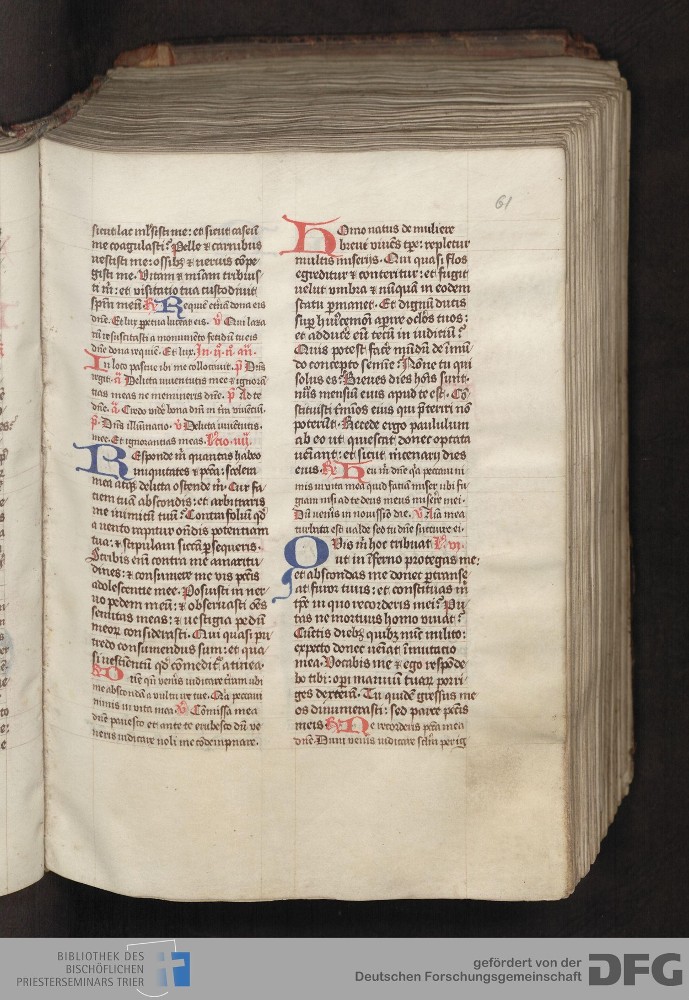 61
sicut lac mlsisti me: et sicut caseū
me coagulasti? Pelle ⁊ carnibus
vestisti me: ossibꝫ ⁊ neruis cōpe
gisti me. Vitam ⁊ mīam tribuis
ti m̄: et visitatio tua custodiuit
spūm meū R̄ Requiē etnā dona eis
dn̄e. Et lux ꝑpetua luceat eis. v̄ Qui laza
rū resuscitasti a monumēto fetidū tu eis
dn̄e dona requiē. Et lux. In ij n̄ an̄.
In loco pascue ibi me collocauit. p̄ Dn̄s
regit. a Delicta iuuentutis mee ⁊ ignorā
tias meas ne memineris dn̄e. p̄ Ad te
dn̄e. a Credo videē bona dn̄i in tr̄a viuentiū.
p̄. Dn̄s illuminatio. v̄ Delicta iuuētutis.
mee. Et ignorantias meas. Lc̄io. iiij.
Responde m̄ quantas habeo
iniquitates ⁊ pc̄ca: scelera
mea atqꝫ delicta ostende m̄. Cur fa
ciem tuā abscondis: et arbitraris
me inimicū tuū? Contra foliū qđ
a vento rapitur on̄dis potentiam
tua: ⁊ stipulam siccā ꝑsequeris.
Scribis enī contra me amaritu
dines: ⁊ consumere me vis pctīs
adolescentie mee. Posuisti in ner
uo pedem meū: ⁊ obseruasti oēs
semitas meas: ⁊ vestigia pedū
meoꝝ considerasti. Qui quasi pu
tredo consumendus sum: et qua
si vestimentū qđ cōmedit᷒ a tinea.
R̄ Dn̄e qn̄ venīs iudicare terram ubi
me abscondā a vultu ire tue. Qꝛ peccaui
nimis in vita mea. v̄ Cōmissa mea
dn̄e pauesco et ante te erubesco dū ve
neris iudicare noli me cōdempnare.
Homo natus de muliere
breui viuēs tꝑe: repletur
multis miserijs. Qui quasi flos
egreditur ⁊ conteritur: et fugit
velut vmbra ⁊ nūquā in eodem
statu ꝑmanet. Et dignū ducis
suꝑ huꝰcemōi aꝑire oc̄los tuos:
et adducē eū tecū in iudiciū?
Quis potest facē mūdū de īmū
do conceptū semīe? Nōne tu qui
solus es? Breues dies hoīs sunt.
nūs mensiū eius apud te est. Cō
stituisti t̄mīos eius qui p̄terri nō
poterūt. Recede ergo paululum
ab eo ut quiescat donec optata
veniant: et sicut m̄cenary dies
eius. R̄ Heu m̄ dn̄e qꝛ peccaui ni
mis in vita mea quid faciā miser ubi fu
giam nisi ad te deus meus misere mei.
Dū venīs in nouissīo die. v̄ Aīa mea
turbata est valde sed tu dn̄e succurre ei.
Quis m̄ hoc tribuat Lc̄. vi.
ut in īferno protegas me:
et abscondas me donec ꝑtranse
at furor tuus: et constituas m̄
tꝑe in quo recorderis mei? Pu
tas ne mortuus homo viuat?
Cūctis diebꝫ quibꝫ nūc milito:
expecto donec veniat īmutatio
mea. Vocabis me ⁊ ego respōde
bo tibi: oꝑi manuū tuaꝝ porri
ges dexterā. Tu quidē gressus me
os dinumerasti: sed parce pctīs
meis R̄ Ne recorderis pctā mea
dn̄e. Dum venīs iudicare sclm̄ per ig
BIBLIOTHEK DES
BISCHÖFLICHEN
PRIESTERSEMINARS TRIER
gefördert von der
Deutschen Forschungsgemeinschaft
DFG